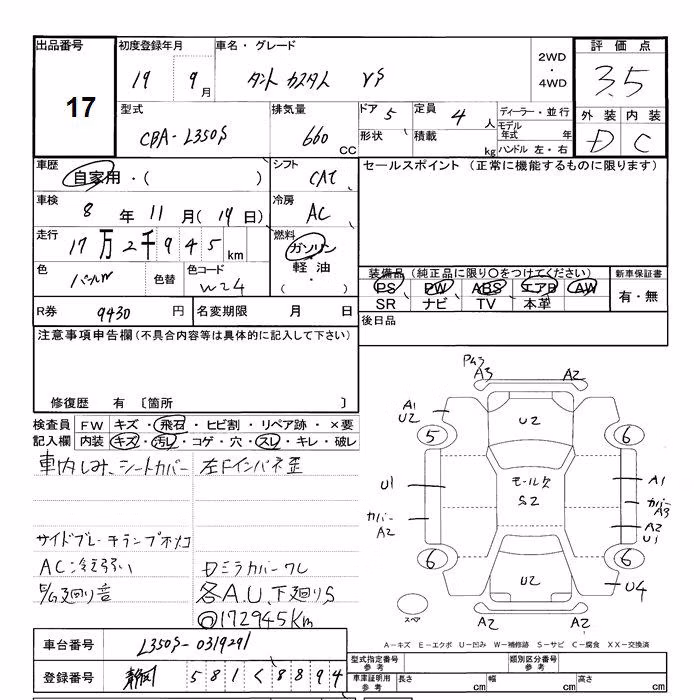 出品番号 初度登録年月 車名・グレード 評価点
17
19 9月 タント カスタム VS
2WD・4WD
3.5
型式 排気量 ドア 5 定員 4人 ディーラー・並行 外装 内装
CBA-L350S 660 CC 形状 積載 kg モデル年式 年 D C
ハンドル 左・右
車歴 シフト セールスポイント (正常に機能するものに限ります)
自家用・( ) CAT
車検 冷房
8年 11月(19日) AC
走行 燃料
17万2千945km ガソリン
軽油
色 色替 色コード
パールW W24
装備品(純正品に限り〇をつけてください) 新車保証書
PS PW ABS エアB AW 有・無
SR ナビ TV 本革
R券 9430円 名変期限 月 日 後日品
注意事項申告欄(不具合内容等は具体的に記入して下さい)
修復歴 有 〔箇所 〕
検査員 FW キズ・飛石・ヒビ割・リペア跡・×要
記入欄 内装 キズ・汚レ・コゲ・穴・スレ・キレ・破レ
車内しみ、シートカバー 左Fインパネ歪
サイドブレーキランプ不灯
AC冷え弱い Dミラカバーワレ
廻り音 各A.U、下廻りS
◎172945Km
A3 A2
A1
U2 U2
5 6
U1 モール欠 A1
S2 カバー
A3
カバー A2
A2 U1
6 6
U2 U4
スペア A2 A2
A-キズ E-エクボ U-凹み W-補修跡 S-サビ C-腐食 XX-交換済
車台番号 L350S-0319291
登録番号 静岡 581 く 8894
型式指定番号 参考 類別区分番号 参考
車庫証明用 参考 長さ cm 幅 cm 高さ cm